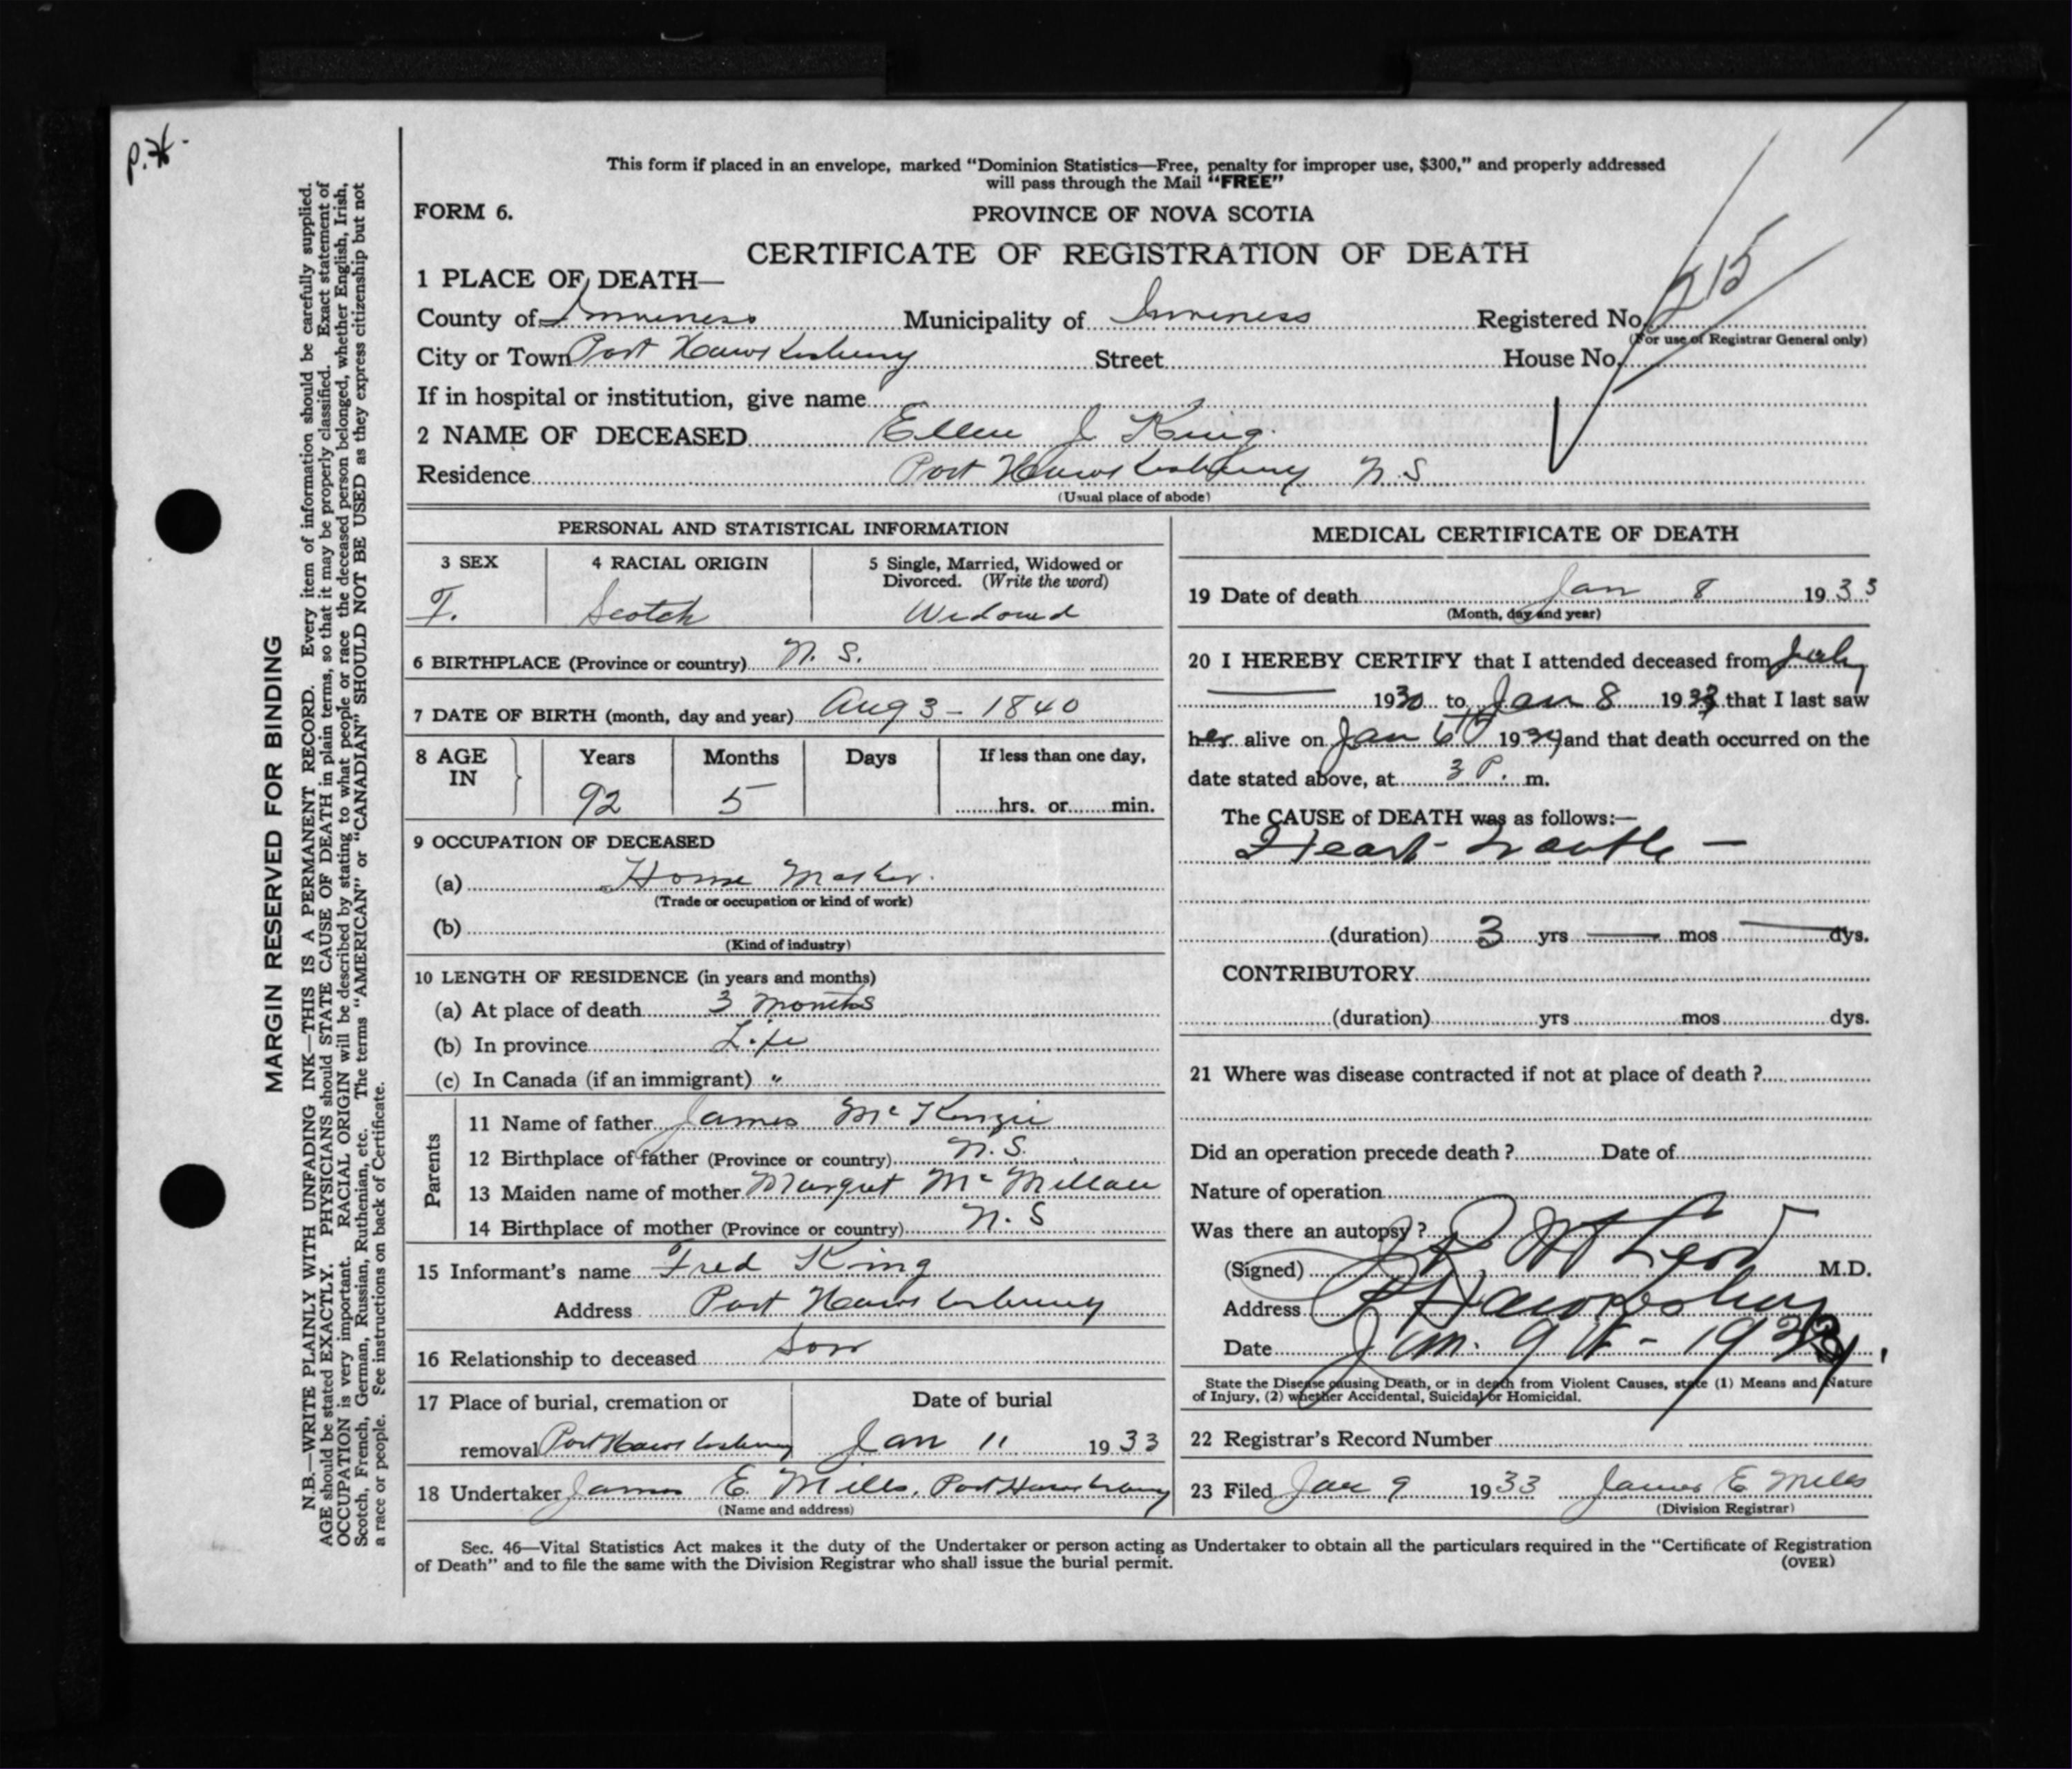 P.H.
This form if placed in an envelope, marked “Dominion Statistics—Free, penalty for improper use, $300,” and properly addressed
will pass through the Mail “FREE”
FORM 6. PROVINCE OF NOVA SCOTIA
CERTIFICATE OF REGISTRATION OF DEATH
1 PLACE OF DEATH—
County of Inverness Municipality of Inverness Registered No. 215
(For use of Registrar General only)
City or Town Port Hawkesbury Street House No.
If in hospital or institution, give name
2 NAME OF DECEASED Ellen J King
Residence Port Hawkesbury N.S
(Usual place of abode)
PERSONAL AND STATISTICAL INFORMATION
3 SEX 4 RACIAL ORIGIN 5 Single, Married, Widowed or
Divorced. (Write the word)
F. Scotch Widowed
6 BIRTHPLACE (Province or country) N. S.
7 DATE OF BIRTH (month, day and year) Aug 3 - 1840
8 AGE IN Years Months Days If less than one day,
92 5 hrs. or min.
9 OCCUPATION OF DECEASED
(a) Home Maker.
(Trade or occupation or kind of work)
(b)
(Kind of industry)
10 LENGTH OF RESIDENCE (in years and months)
(a) At place of death 3 Months
(b) In province Life
(c) In Canada (if an immigrant) "
Parents
11 Name of father James McKenzie
12 Birthplace of father (Province or country) N.S.
13 Maiden name of mother Margret McMillan
14 Birthplace of mother (Province or country) N. S
15 Informant’s name Fred King
Address Port Hawkesbury
16 Relationship to deceased Son
17 Place of burial, cremation or Date of burial
removal Port Hawkesbury Jan 11 1933
18 Undertaker James E. Mills, Port Hawkesbury
(Name and address)
MEDICAL CERTIFICATE OF DEATH
19 Date of death Jan 8 1933
(Month, day and year)
20 I HEREBY CERTIFY that I attended deceased from July
1930 to Jan 8 1933 that I last saw
her alive on Jan 6th 19 and that death occurred on the
date stated above, at 3 P. m.
The CAUSE of DEATH was as follows:—
Heart - trouble —
(duration) 3 yrs — mos — dys.
CONTRIBUTORY
(duration) yrs mos dys.
21 Where was disease contracted if not at place of death ?
Did an operation precede death ? Date of
Nature of operation
Was there an autopsy ?
(Signed) McLeod M.D.
Address P Hawkesbury
Date Jan. 9th - 1933.
State the Disease causing Death, or in death from Violent Causes, state (1) Means and Nature
of Injury, (2) whether Accidental, Suicidal or Homicidal.
22 Registrar’s Record Number
23 Filed Jan 9 1933 James E Mills
(Division Registrar)
Sec. 46—Vital Statistics Act makes it the duty of the Undertaker or person acting as Undertaker to obtain all the particulars required in the “Certificate of Registration
of Death” and to file the same with the Division Registrar who shall issue the burial permit. (OVER)
MARGIN RESERVED FOR BINDING
N.B.—WRITE PLAINLY WITH UNFADING INK—THIS IS A PERMANENT RECORD. Every item of information should be carefully supplied.
AGE should be stated EXACTLY. PHYSICIANS should STATE CAUSE OF DEATH in plain terms, so that it may be properly classified. Exact statement of
OCCUPATION is very important. RACIAL ORIGIN will be described by stating to what people or race the deceased person belonged, whether English, Irish,
Scotch, French, German, Russian, Ruthenian, etc. The terms “AMERICAN” or “CANADIAN” SHOULD NOT BE USED as they express citizenship but not
a race or people. See instructions on back of Certificate.